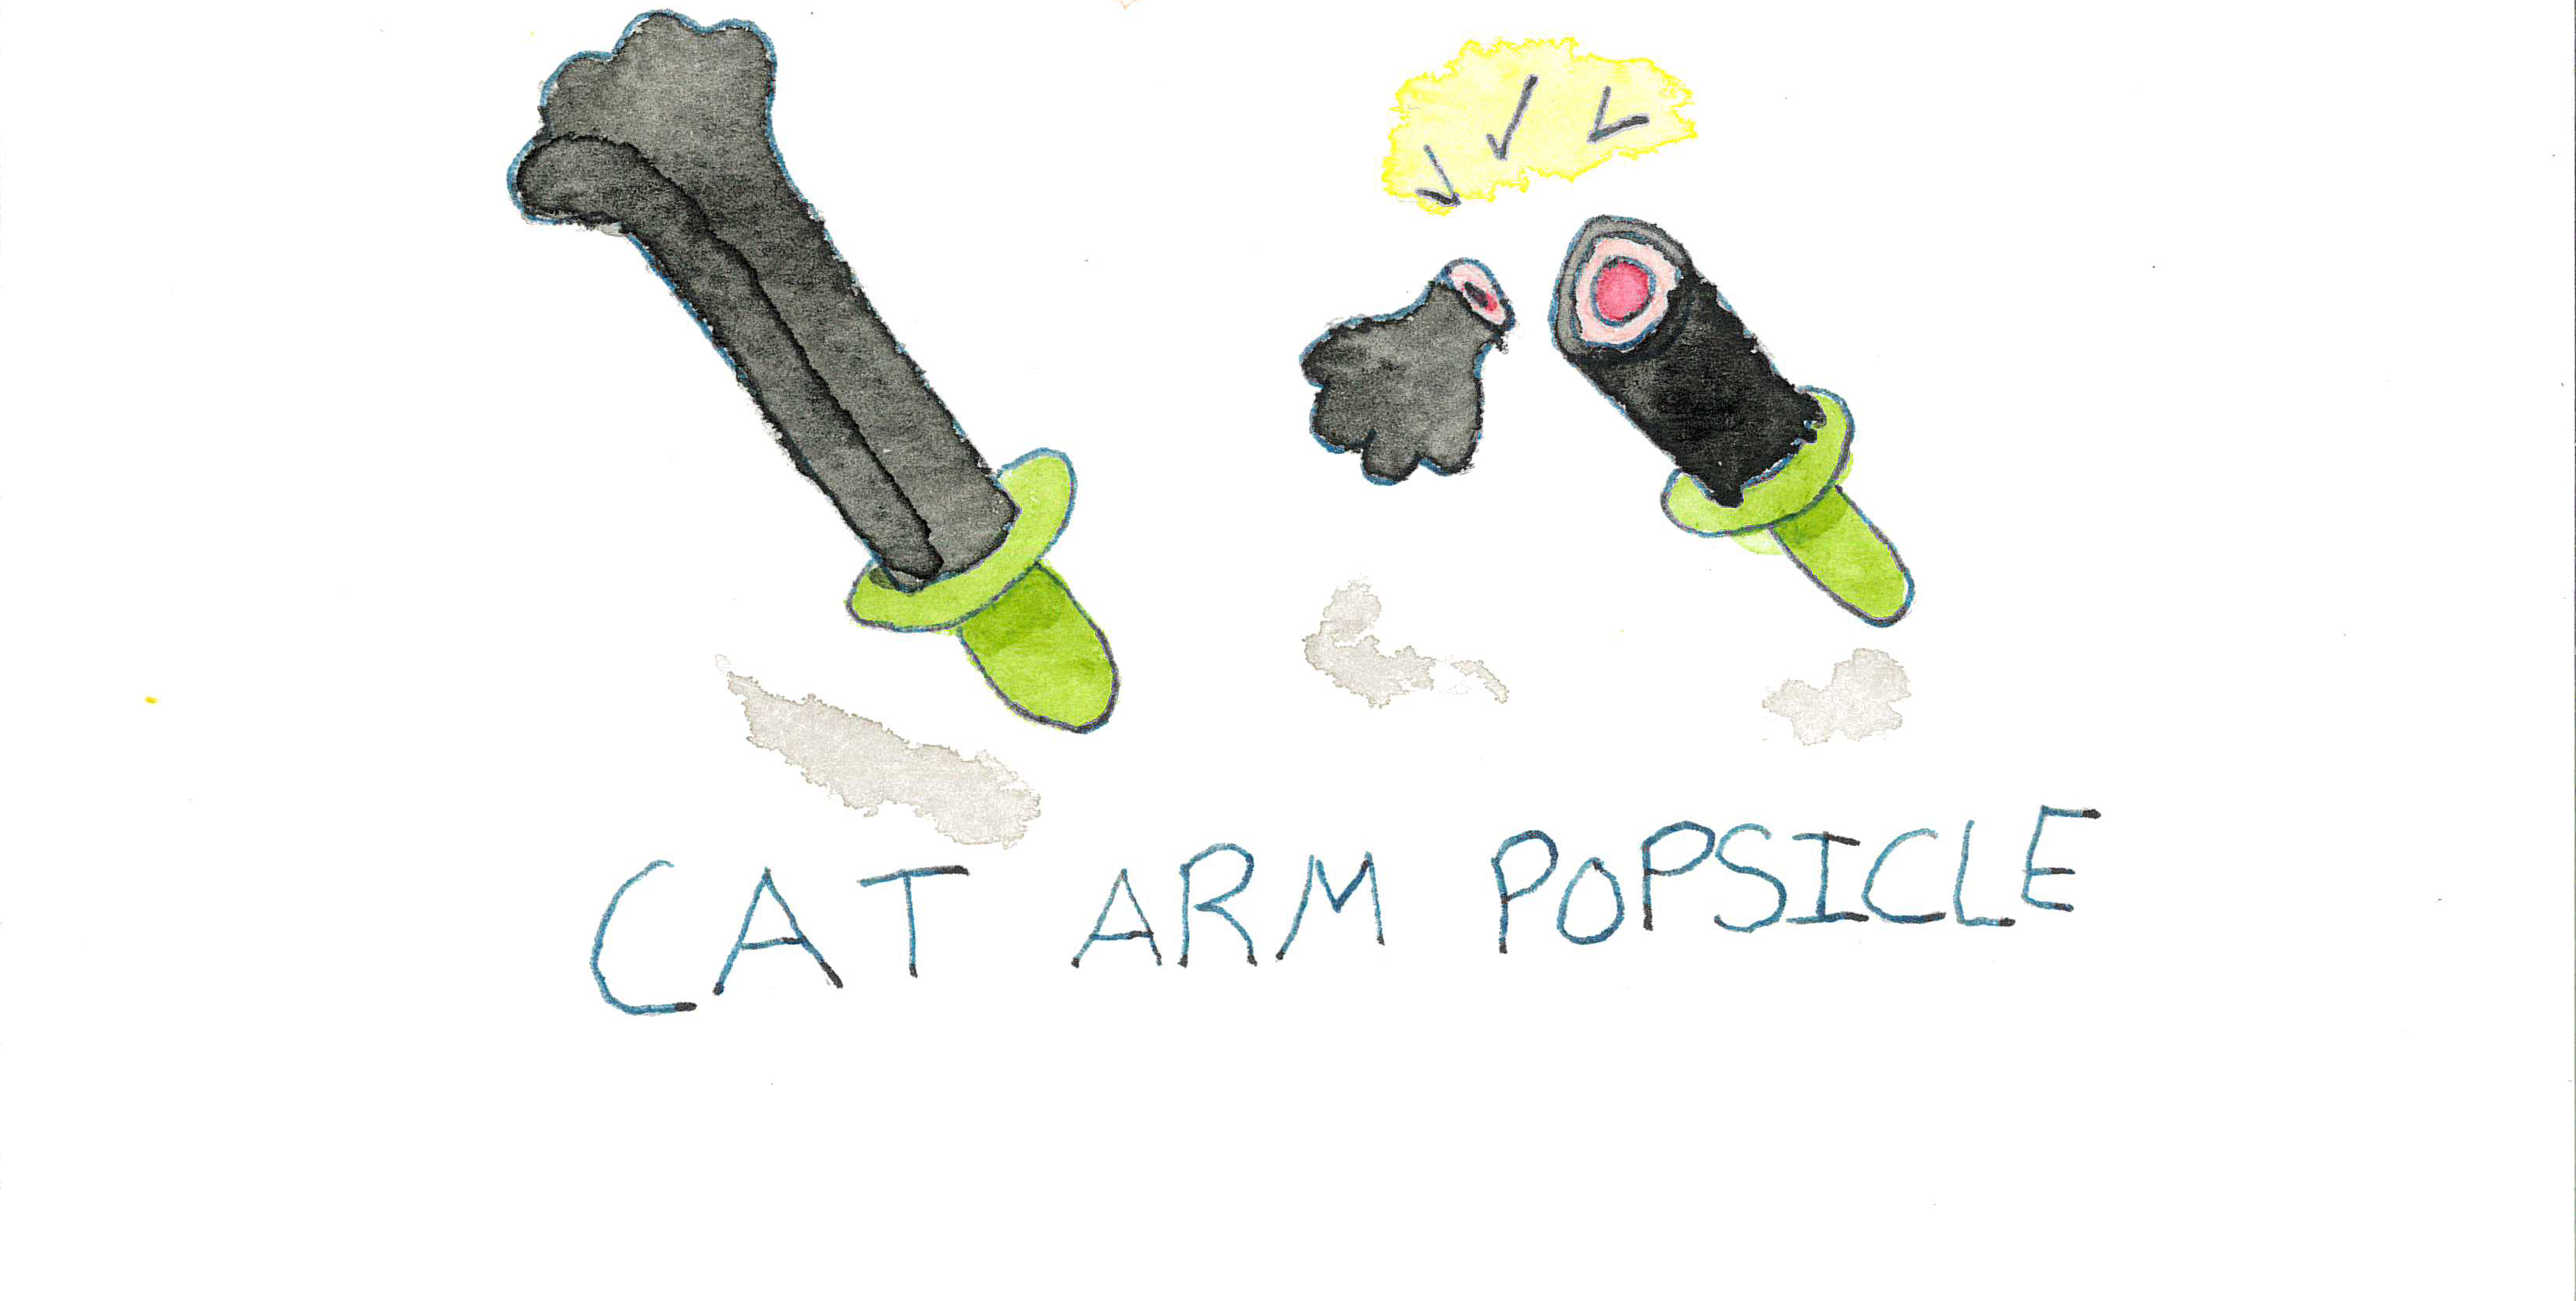 CAT ARM POPSICLE